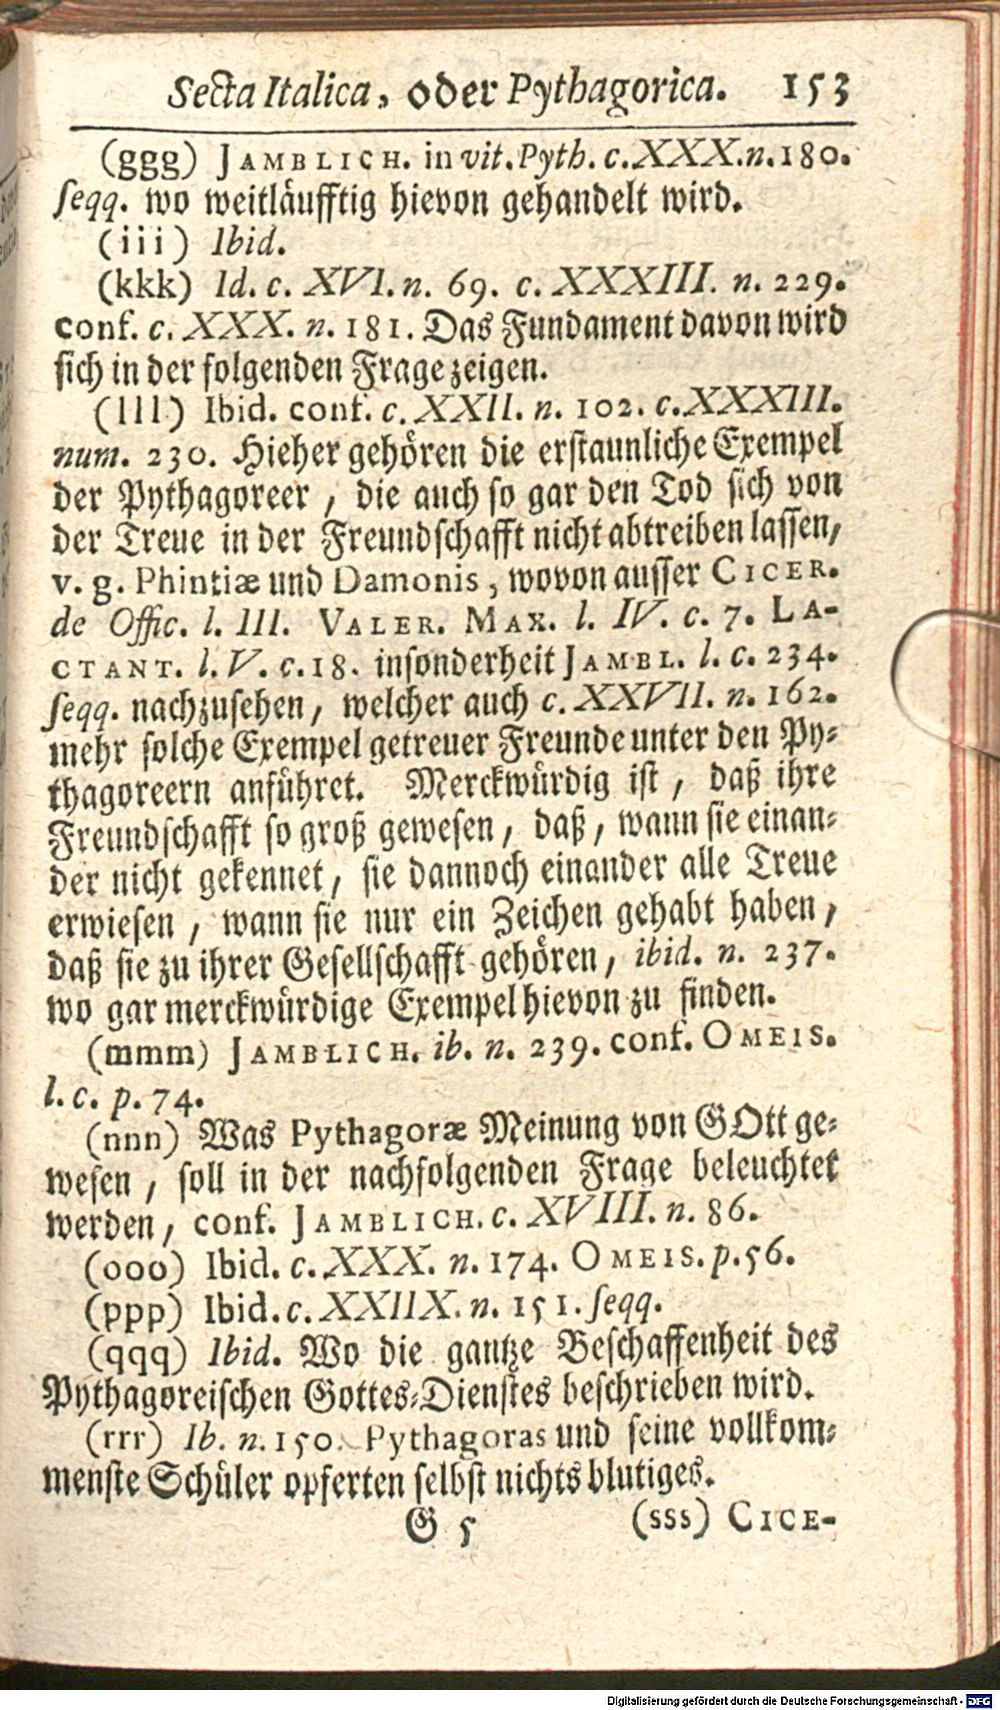 Secta Italica, oder Pythagorica. 153
(ggg) JAMBLICH. in vit. Pyth. c. XXX. n. 180.
seqq. wo weitläufftig hievon gehandelt wird.
(iii) Ibid.
(kkk) Id. c. XVI. n. 69. c. XXXIII. n. 229.
conf. c. XXX. n. 181. Das Fundament davon wird
sich in der folgenden Frage zeigen.
(lll) Ibid. conf. c. XXII. n. 102. c. XXXIII.
num. 230. Hieher gehören die erstaunliche Exempel
der Pythagoreer, die auch so gar den Tod sich von
der Treue in der Freundschafft nicht abtreiben lassen,
v. g. Phintiæ und Damonis, wovon ausser CICER.
de Offic. l. III. VALER. MAX. l. IV. c. 7. LA-
CTANT. l. V. c. 18. insonderheit JAMBL. l. c. 234.
seqq. nachzusehen, welcher auch c. XXVII. n. 162.
mehr solche Exempel getreuer Freunde unter den Py-
thagoreern anführet. Merckwürdig ist, daß ihre
Freundschafft so groß gewesen, daß, wann sie einan-
der nicht gekennet, sie dannoch einander alle Treue
erwiesen, wann sie nur ein Zeichen gehabt haben,
daß sie zu ihrer Gesellschafft gehören, ibid. n. 237.
wo gar merckwürdige Exempel hievon zu finden.
(mmm) JAMBLICH. ib. n. 239. conf. OMEIS.
l. c. p. 74.
(nnn) Was Pythagoræ Meinung von GOtt ge-
wesen, soll in der nachfolgenden Frage beleuchtet
werden, conf. JAMBLICH. c. XVIII. n. 86.
(ooo) Ibid. c. XXX. n. 174. OMEIS. p. 56.
(ppp) Ibid. c. XXIIX. n. 151. seqq.
(qqq) Ibid. Wo die gantze Beschaffenheit des
Pythagoreischen Gottes-Dienstes beschrieben wird.
(rrr) Ib. n. 150. Pythagoras und seine vollkom-
menste Schüler opferten selbst nichts blutiges.
G 5 (sss) CICE-
Digitalisierung gefördert durch die Deutsche Forschungsgemeinschaft - DFG